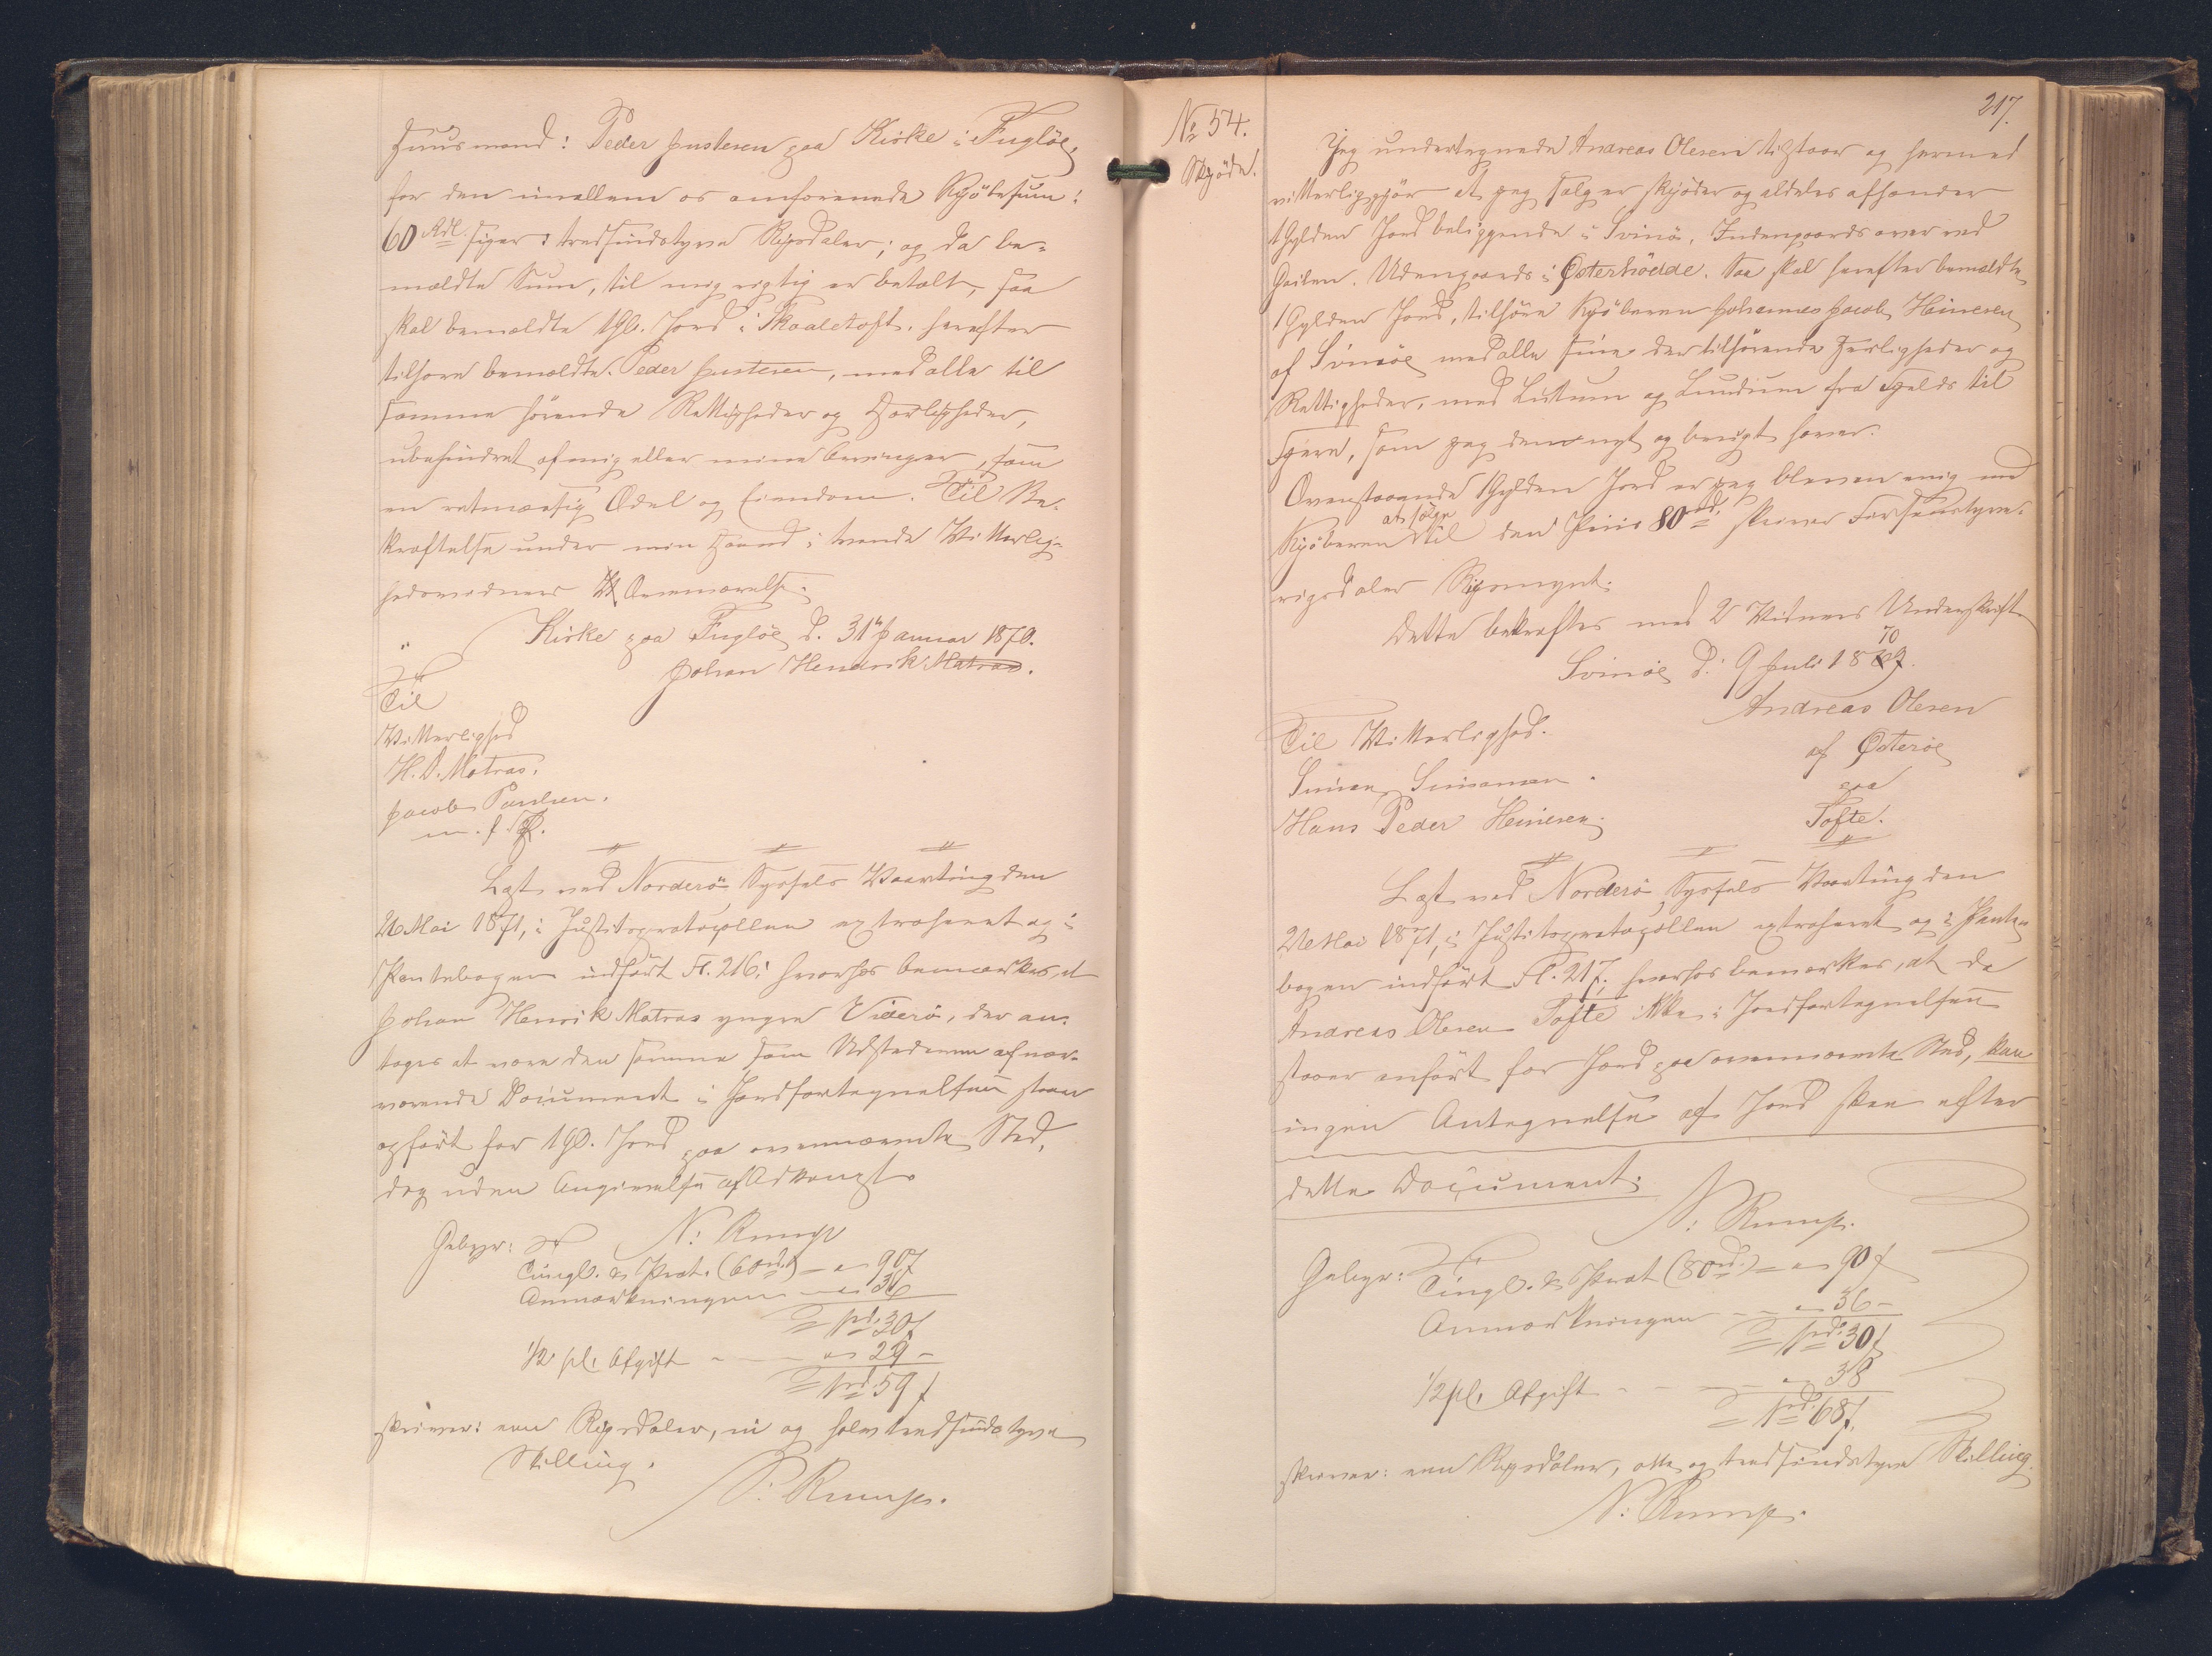 Huusmand: Peder Justesen paa Kirke i Fugløe,
for den imellem os omforenede Kjöbesum:
60 Rdl. siger: tredsindstyve Rigsdaler; og da be-
mældte Sum, til mig rigtig er betalt, saa
skal bemældte 1 Gl. Jord i Skaaletoft, herefter
tilhøre bemældte Peder Justesen, med alle til
samme hörende Rettigheder og Herligheder,
ubehindret af mig eller mine Arvinger, som
en retmæssig Odel og Eiendom. Til Be-
kræftelse under min Haand i tvende Vitterlig-
hedsvidners Overværelse.
Kirke paa Fugløe d. 31te Januar 1870.
Johan Hendrik Matras.
Til
Vitterlighed
H. D. Matras.
Jacob Poulsen.
m. f. P.
Læst ved Norderö Syssels Vaarting den
26 Mai 1871, i Justitsprotocollen extraheret og i
Pantebogen indfört Fl. 216; hvorhos bemærkes, at
Johan Henrik Matras yngre Viderö, der an-
tages at være den samme som Udstederen af nær-
værende Document i Jordfortegnelsen staaer
opfört for 1 Gl. Jord paa ovennævnte Sted,
dog uden Angivelse af Adkomst.
N: Rump
Gebyr:
Tingl. & Prot. (60 rd.) — " 90 ſ
Anmærkningen — " 36
1 rd. 30 ſ
1/2 pCt. Afgift — " 29 -
1 rd. 59 ſ
skriver: een Rigsdaler, ni og halvtredsindstyve
Skilling.
N: Rump.
217.
No 54.
Skjöde.
Jeg undertegnede Andreas Olesen tilstaar og hermed
vitterliggjör at jeg sælger skjöder og aldeles afhænder
1 Gylden Jord beliggende i Svinö, Indengaards over ved
Gailen. Udengaards i Österhödde. Saa skal herefter bemældte
1 Gylden Jord, tilhöre Kjöberen Johannes Jacob Heinesen
af Svinöe med alle sine der tilhörende Herligheder og
Rettigheder, med Lutum og Lundum fra Fjelds til
Fjære, som jeg dem nyt og brugt haver.
Ovenstaaende 1 Gylden Jord er jeg bleven enig med
Kjöberen at sælge til den Priis 80 rd. skriver Firsenstyve-
rigsdaler Rigsmynt.
Dette bekræftes med 2 Vidners Underskrift
Svinöe d. 9 Juli 1870.
Andreas Olesen
af Österöe
paa
Tofte.
Til Vitterlighed.
Simon Simonsen.
Hans Peder Heinesen.
Læst ved Norderö Syssels Vaarting den
26 Mai 1871, i Justitsprotocollen extraheret og i Pante-
bogen indfört Fl. 217; hvorhos bemærkes, at da
Andreas Olesen Tofte ikke i Jordfortegnelsen
staaer anfört for Jord paa ovennævnte Sted, kan
ingen Antegnelse af Jord skee efter
dette Document.
N: Rump.
Gebyr:
Tingl. & Prot (80 rd.) — " 90 ſ
Anmærkningen — " 36 -
1 rd. 30 ſ
1/2 pCt. Afgift — " 38
1 rd. 68 ſ.
skriver: een Rigsdaler, otte og tredsindstyve Skilling.
N: Rump.